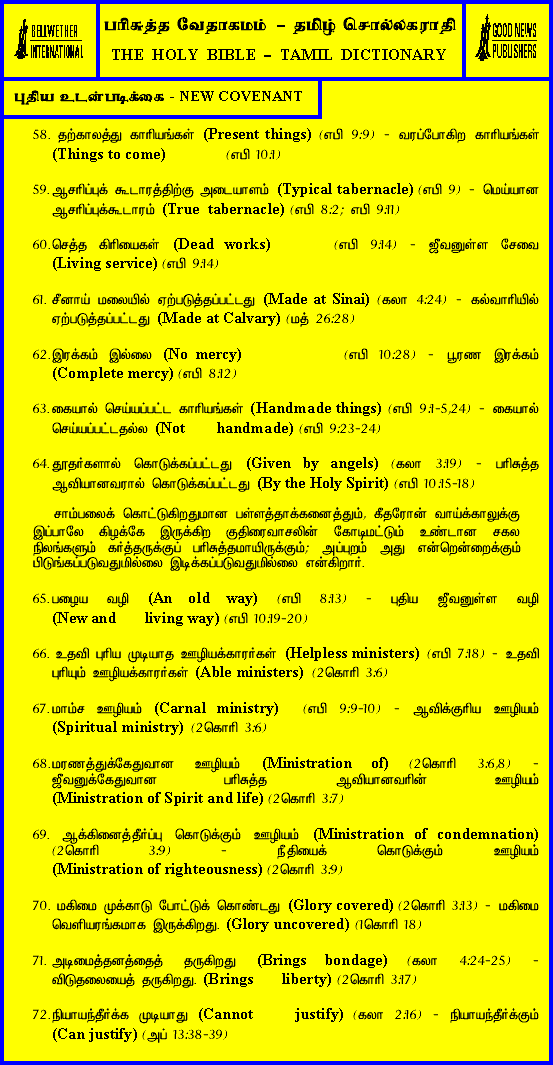 BELLWETHER
INTERNATIONAL
பரிசுத்த வேதாகமம் – தமிழ் சொல்லகராதி
THE HOLY BIBLE – TAMIL DICTIONARY
GOOD NEWS
PUBLISHERS
புதிய உடன்படிக்கை - NEW COVENANT
58. தற்காலத்து காரியங்கள் (Present things) (எபி 9:9) - வரப்போகிற காரியங்கள்
(Things to come) (எபி 10:1)
59. ஆசரிப்புக் கூடாரத்திற்கு அடையாளம் (Typical tabernacle) (எபி 9) - மெய்யான
ஆசரிப்புக்கூடாரம் (True tabernacle) (எபி 8:2; எபி 9:11)
60. செத்த கிரியைகள் (Dead works) (எபி 9:14) - ஜீவனுள்ள சேவை
(Living service) (எபி 9:14)
61. சீனாய் மலையில் ஏற்படுத்தப்பட்டது (Made at Sinai) (கலா 4:24) - கல்வாரியில்
ஏற்படுத்தப்பட்டது (Made at Calvary) (மத் 26:28)
62. இரக்கம் இல்லை (No mercy) (எபி 10:28) - பூரண இரக்கம்
(Complete mercy) (எபி 8:12)
63. கையால் செய்யப்பட்ட காரியங்கள் (Handmade things) (எபி 9:1-5,24) - கையால்
செய்யப்பட்டதல்ல (Not handmade) (எபி 9:23-24)
64. தூதர்களால் கொடுக்கப்பட்டது (Given by angels) (கலா 3:19) - பரிசுத்த
ஆவியானவரால் கொடுக்கப்பட்டது (By the Holy Spirit) (எபி 10:15-18)
சாம்பலைக் கொட்டுகிறதுமான பள்ளத்தாக்கனைத்தும், கீதரோன் வாய்க்காலுக்கு
இப்பாலே கிழக்கே இருக்கிற குதிரைவாசலின் கோடிமட்டும் உண்டான சகல
நிலங்களும் கர்த்தருக்குப் பரிசுத்தமாயிருக்கும்; அப்புறம் அது என்றென்றைக்கும்
பிடுங்கப்படுவதுமில்லை இடிக்கப்படுவதுமில்லை என்கிறார்.
65. பழைய வழி (An old way) (எபி 8:13) - புதிய ஜீவனுள்ள வழி
(New and living way) (எபி 10:19-20)
66. உதவி புரிய முடியாத ஊழியக்காரர்கள் (Helpless ministers) (எபி 7:18) - உதவி
புரியும் ஊழியக்காரர்கள் (Able ministers) (2கொரி 3:6)
67. மாம்ச ஊழியம் (Carnal ministry) (எபி 9:9-10) - ஆவிக்குரிய ஊழியம்
(Spiritual ministry) (2கொரி 3:6)
68. மரணத்துக்கேதுவான ஊழியம் (Ministration of) (2கொரி 3:6,8) -
ஜீவனுக்கேதுவான பரிசுத்த ஆவியானவரின் ஊழியம்
(Ministration of Spirit and life) (2கொரி 3:7)
69. ஆக்கினைத்தீர்ப்பு கொடுக்கும் ஊழியம் (Ministration of condemnation)
(2கொரி 3:9) - நீதியைக் கொடுக்கும் ஊழியம்
(Ministration of righteousness) (2கொரி 3:9)
70. மகிமை முக்காடு போட்டுக் கொண்டது (Glory covered) (2கொரி 3:13) - மகிமை
வெளியரங்கமாக இருக்கிறது. (Glory uncovered) (1கொரி 18)
71. அடிமைத்தனத்தைத் தருகிறது (Brings bondage) (கலா 4:24-25) -
விடுதலையைத் தருகிறது. (Brings liberty) (2கொரி 3:17)
72. நியாயந்தீர்க்க முடியாது (Cannot justify) (கலா 2:16) - நியாயந்தீர்க்கும்
(Can justify) (அப் 13:38-39)